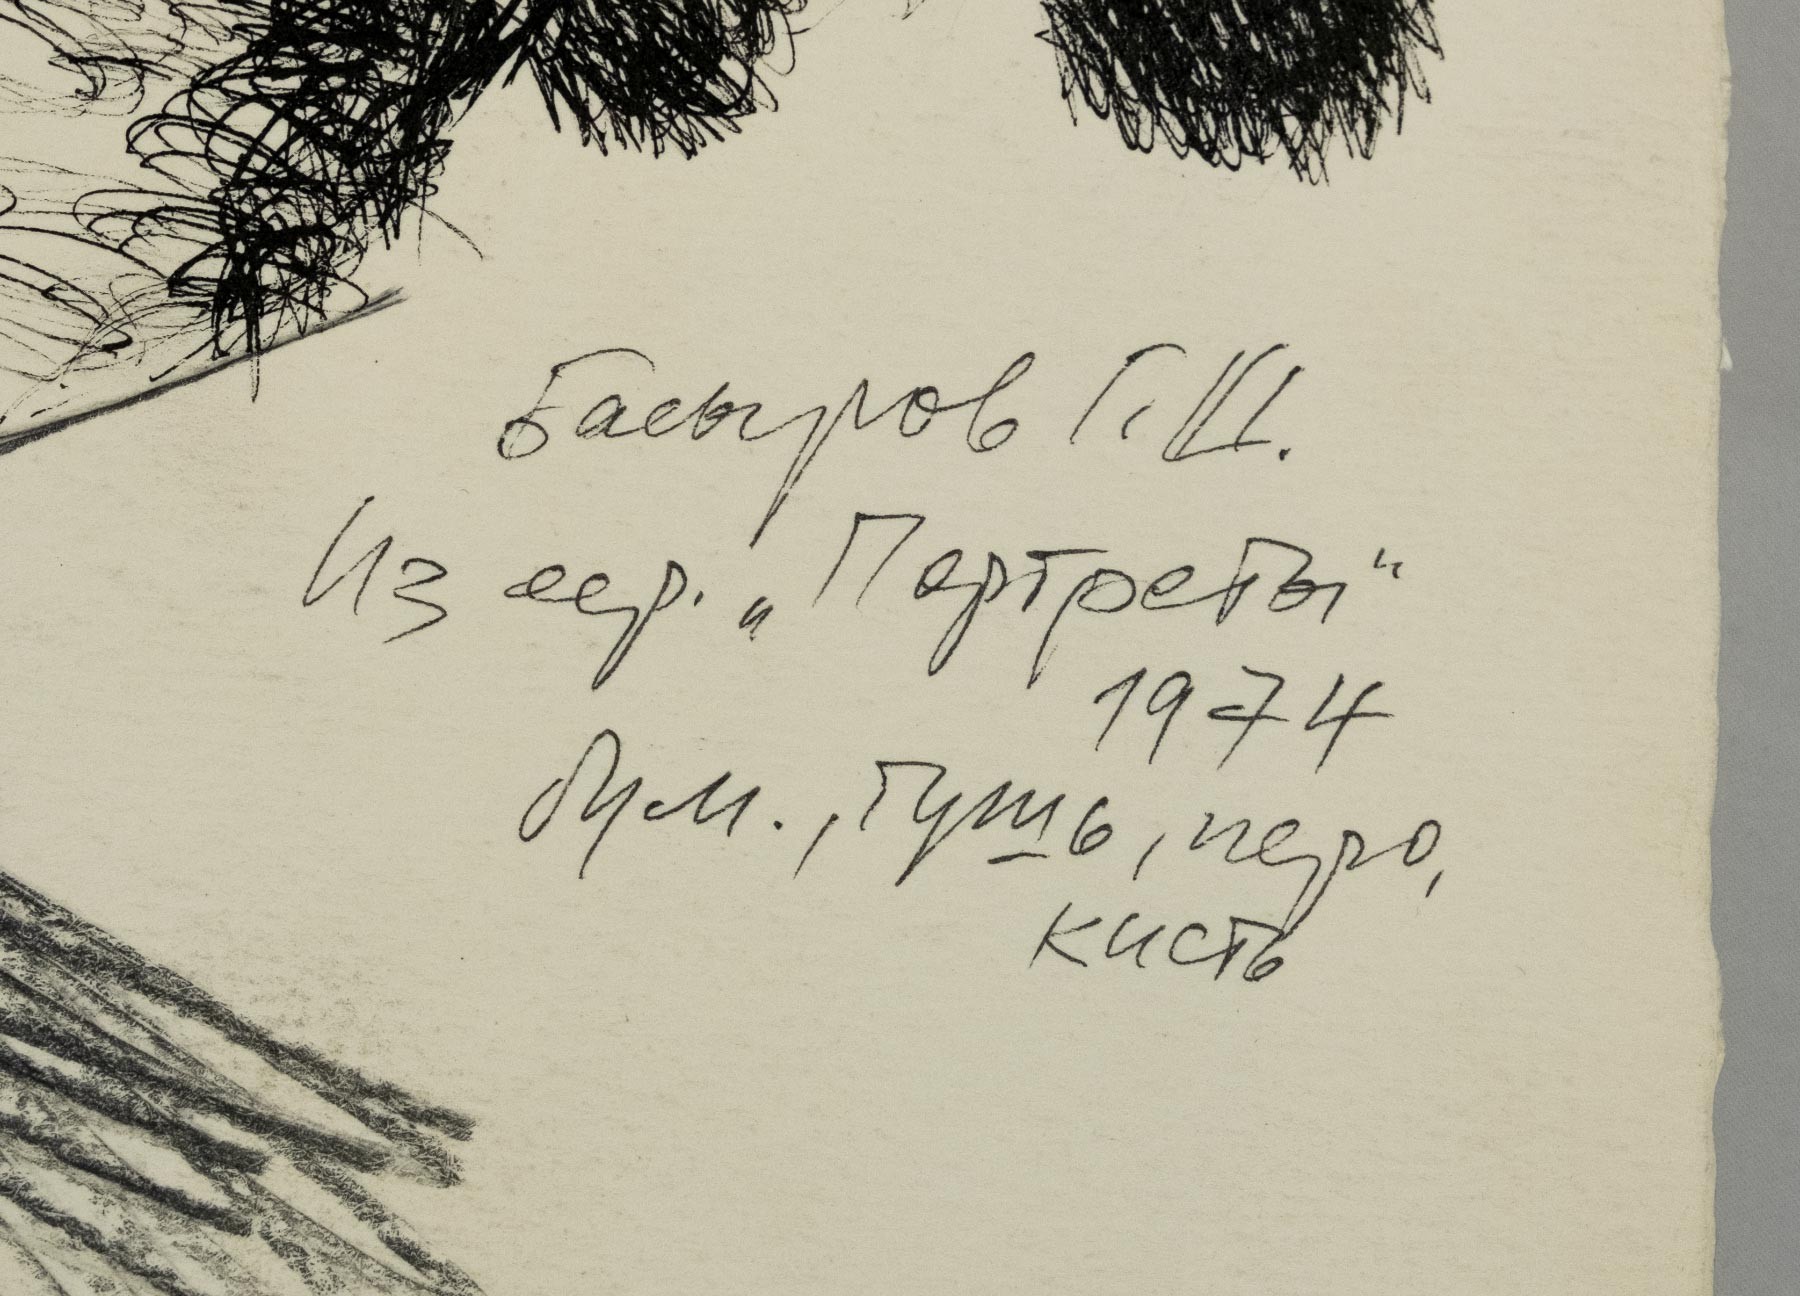 Басыров Г.Ш.
Из сер. „Портреты“
1974
бум., тушь, перо,
кисть